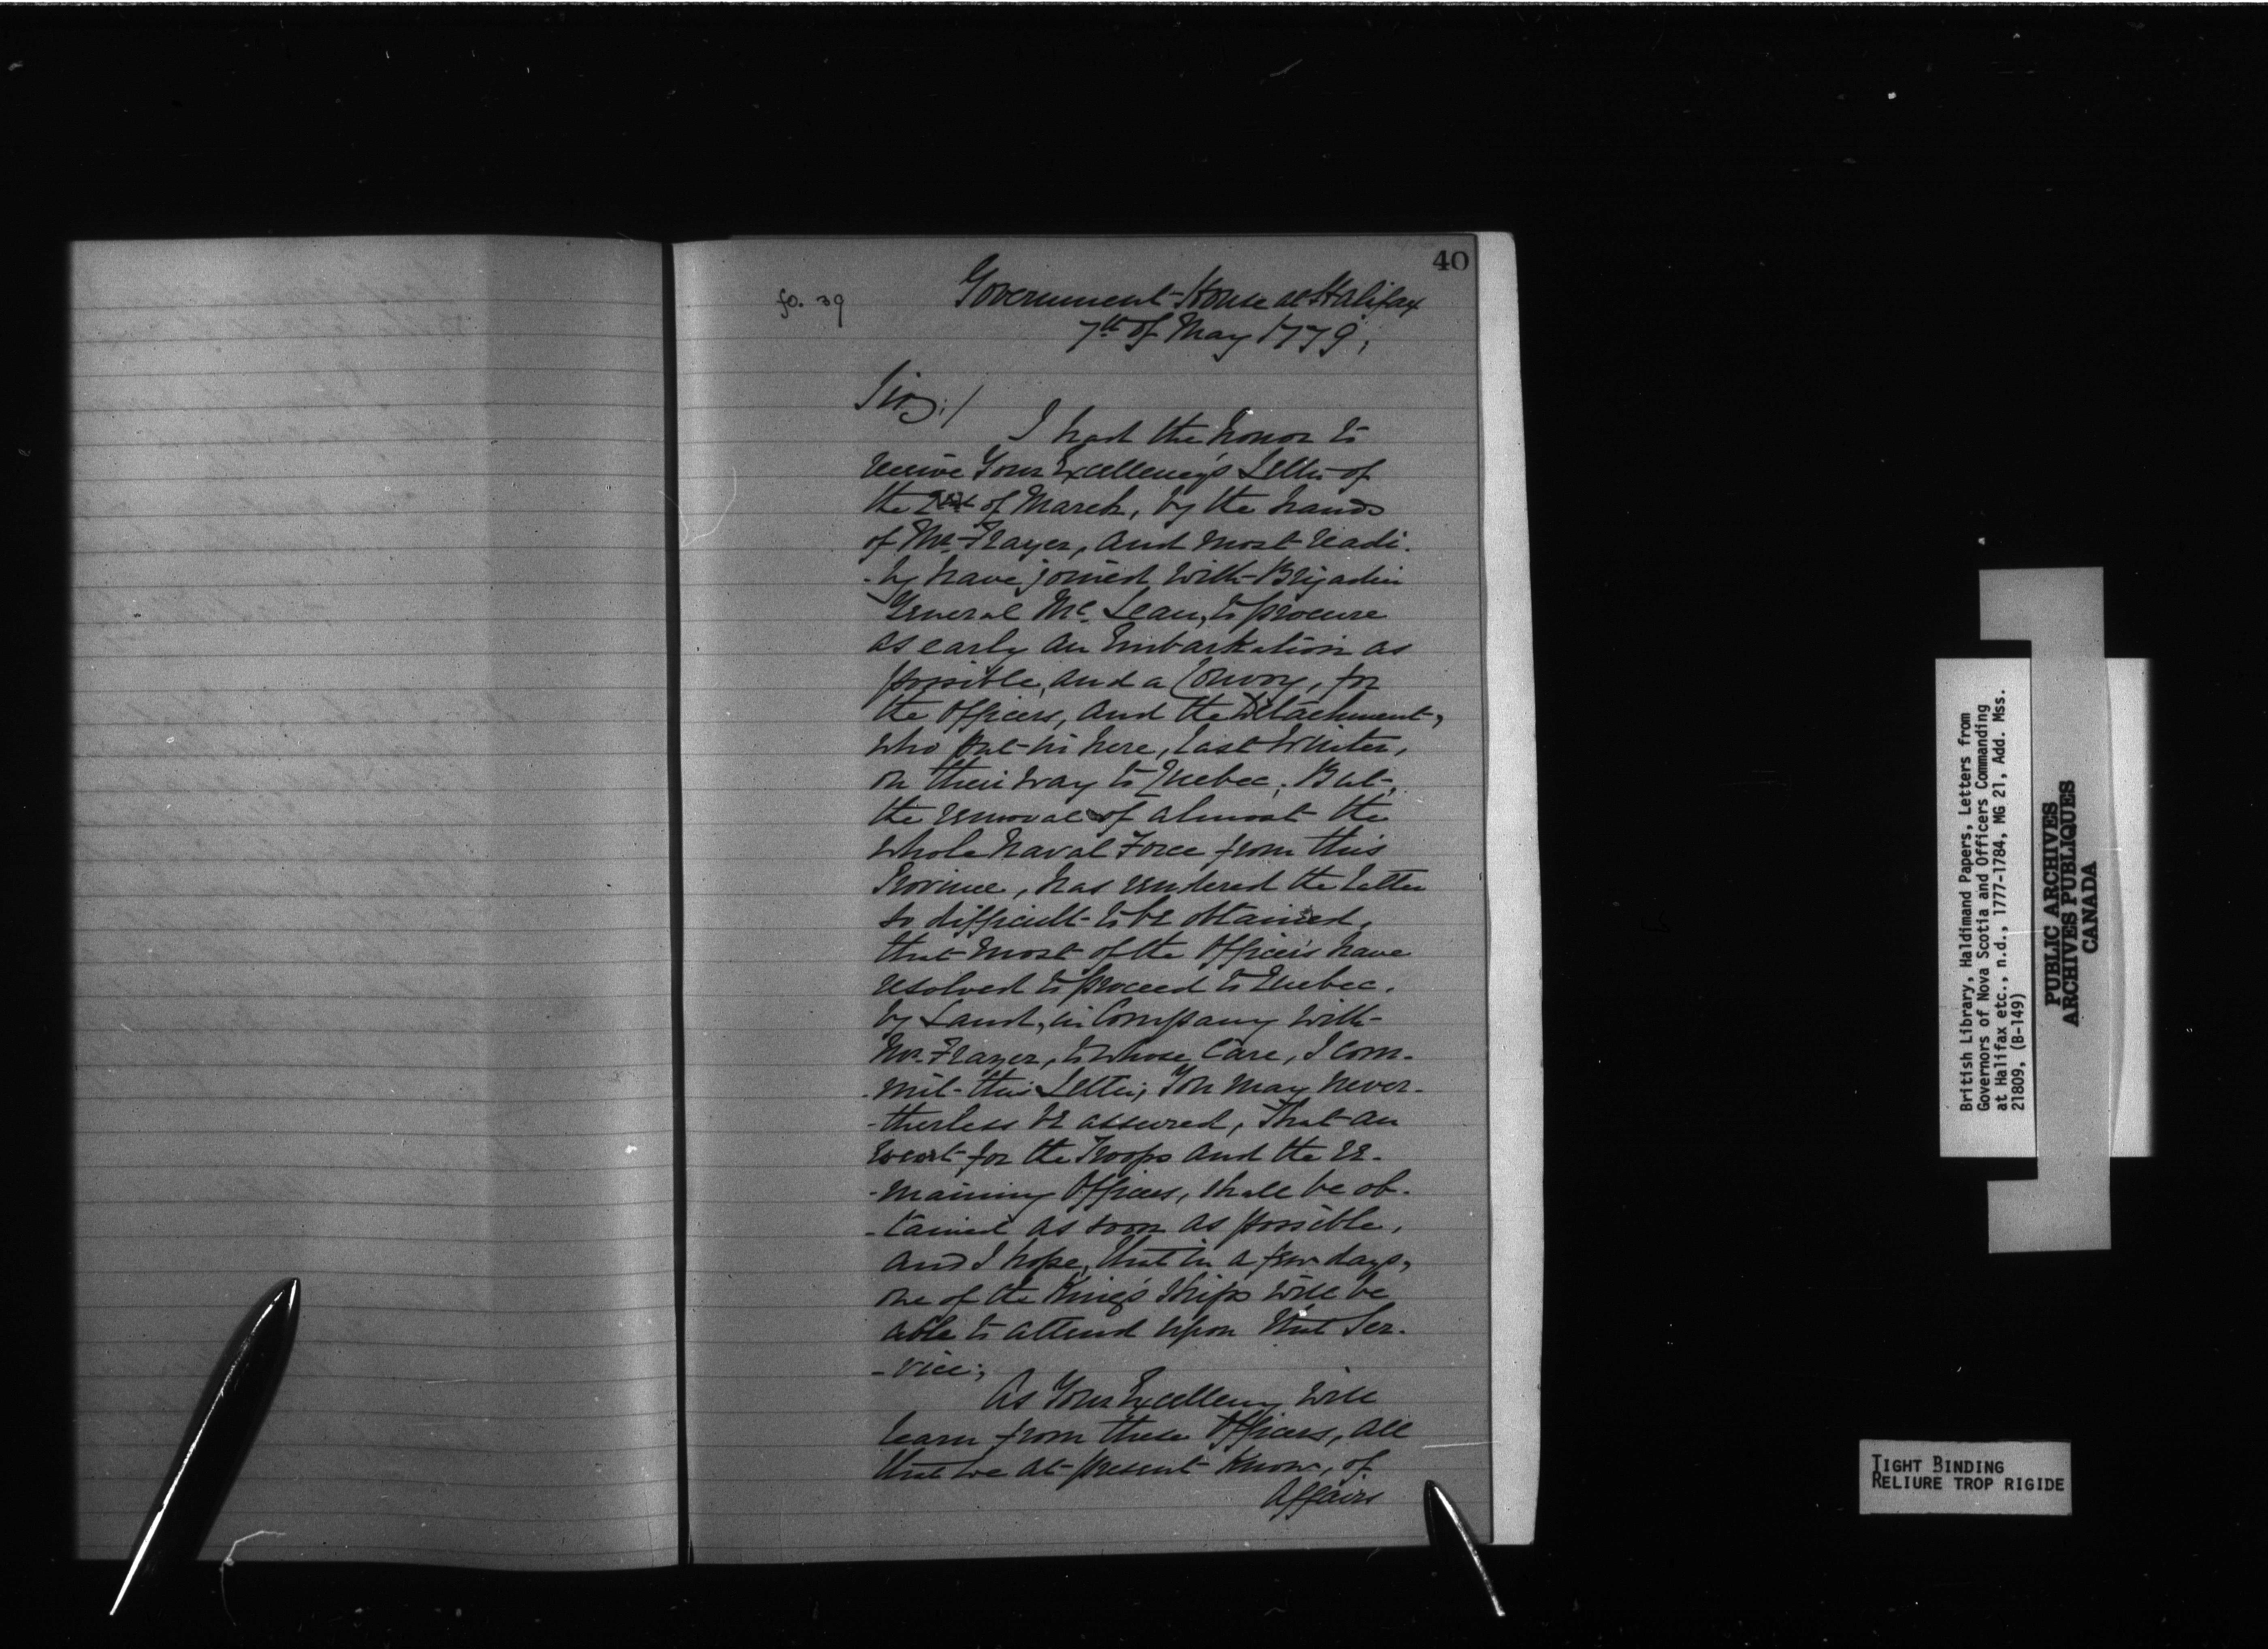 40
fo. 39
Government-House at Halifax
7th of May 1779;
Sir;/
I had the honor to
receive Your Excellency's Letter of
the of March, by the hands
of Mr. Frayer, and most readi-
-ly have joined with Brigadier
General Mc. Lean, to procure
as early an Embarkation as
possible, and a Convoy, for
the Officers, and the Detachment,
who put in here, last Winter,
on their way to Quebec; But,
the removal of almost the
whole Naval Force from this
Province, has rendered the latter
so difficult to be obtained,
that most of the Officers have
resolved to proceed to Quebec,
by Land, in Company with
Mr. Frayer, to whose Care, I com-
-mit this Letter; You may never-
-theless be assured, That an
Escort for the Troops and the re-
-maining Officers, shall be ob-
-tained as soon as possible,
and I hope, that in a few days,
one of the King's Ships will be
able to attend upon that Ser-
-vice;
As Your Excellency will
learn from these Officers, all
that we at present know, of
Affairs
British Library, Haldimand Papers, Letters from
Governors of Nova Scotia and Officers Commanding
at Halifax etc., n.d., 1777-1784, MG 21, Add. Mss.
21809, (B-149)
PUBLIC ARCHIVES
ARCHIVES PUBLIQUES
CANADA
TIGHT BINDING
RELIURE TROP RIGIDE